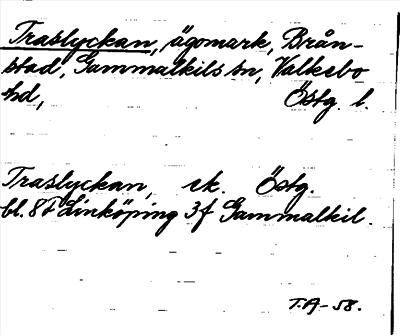 Traslyckan, ägomark, Brån-
stad, Gammalkils sn, Valkebo
hd, Östg. l.
Traslyckan, ek. Östg.
bl. 8F Linköping 3f Gammalkil.
T.A-58.